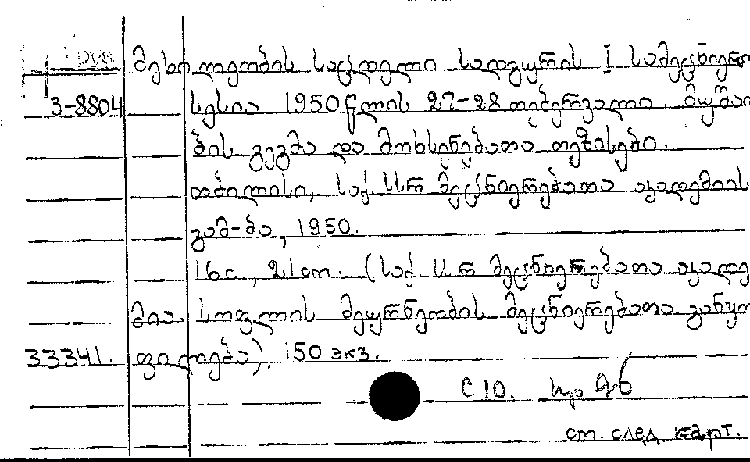 მეხილეობის საცდელი სადგურის I სამეცნიერო
3-8804 სესია 1950 წლის 27-28 თებერვალი მუშაო
ბის გეგმა და მოხსენებათა თეზისები.
თბილისი, საქ. სსრ მეცნიერებათა აკადემიის
გამ-ბა, 1950.
16 с., 21 см. (საქ. სსრ მეცნიერებათა აკადე
მია სოფლის მეურნეობის მეცნიერებათა განყო
33341. ფილება). 150 экз.
С 10.
ст. след. карт.